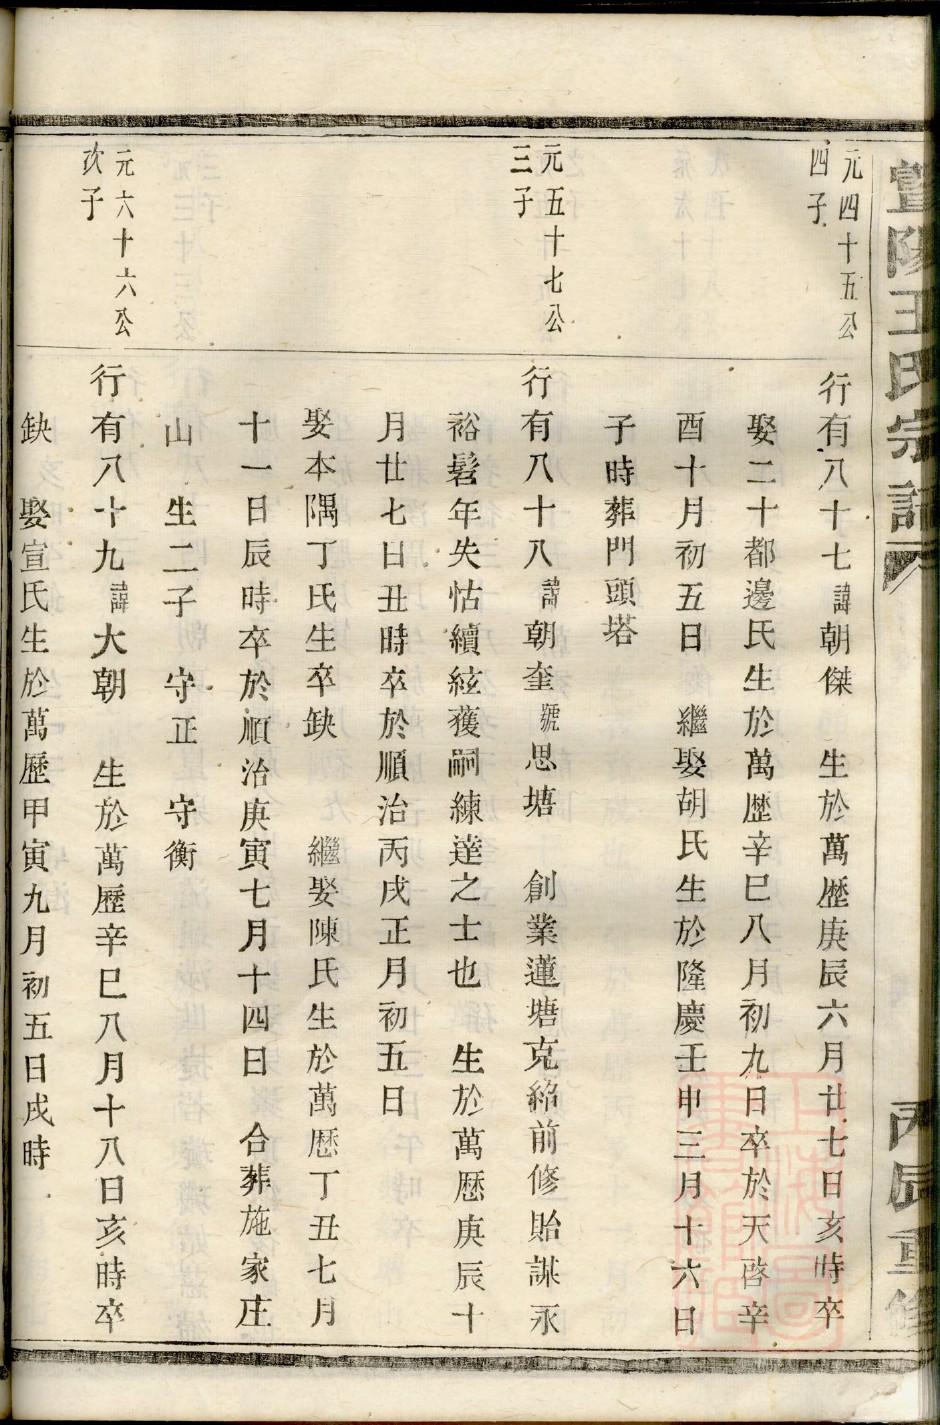 暨陽王氏宗譜
丙辰重修
元四十五公
四子
行有八十七諱朝傑　生於萬歷庚辰六月廿七日亥時卒
娶二十都邊氏生於萬歷辛巳八月初九日卒於天啓辛
酉十月初五日　繼娶胡氏生於隆慶壬申三月十六日
子時葬門頭塔
元五十七公
三子
行有八十八諱朝奎號思塘　創業蓮塘克紹前修貽謀永
裕髫年失怙續絃獲嗣練達之士也　生於萬歷庚辰十
月廿七日丑時卒於順治丙戌正月初五日
娶本隅丁氏生卒缺　繼娶陳氏生於萬歷丁丑七月
十一日辰時卒於順治庚寅七月十四日　合葬施家庄
山　生二子　守正　守衡
元六十六公
次子
行有八十九諱大朝　生於萬歷辛巳八月十八日亥時卒
缺　娶宣氏生於萬歷甲寅九月初五日戌時